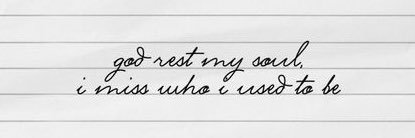 god rest my soul,
i miss who i used to be